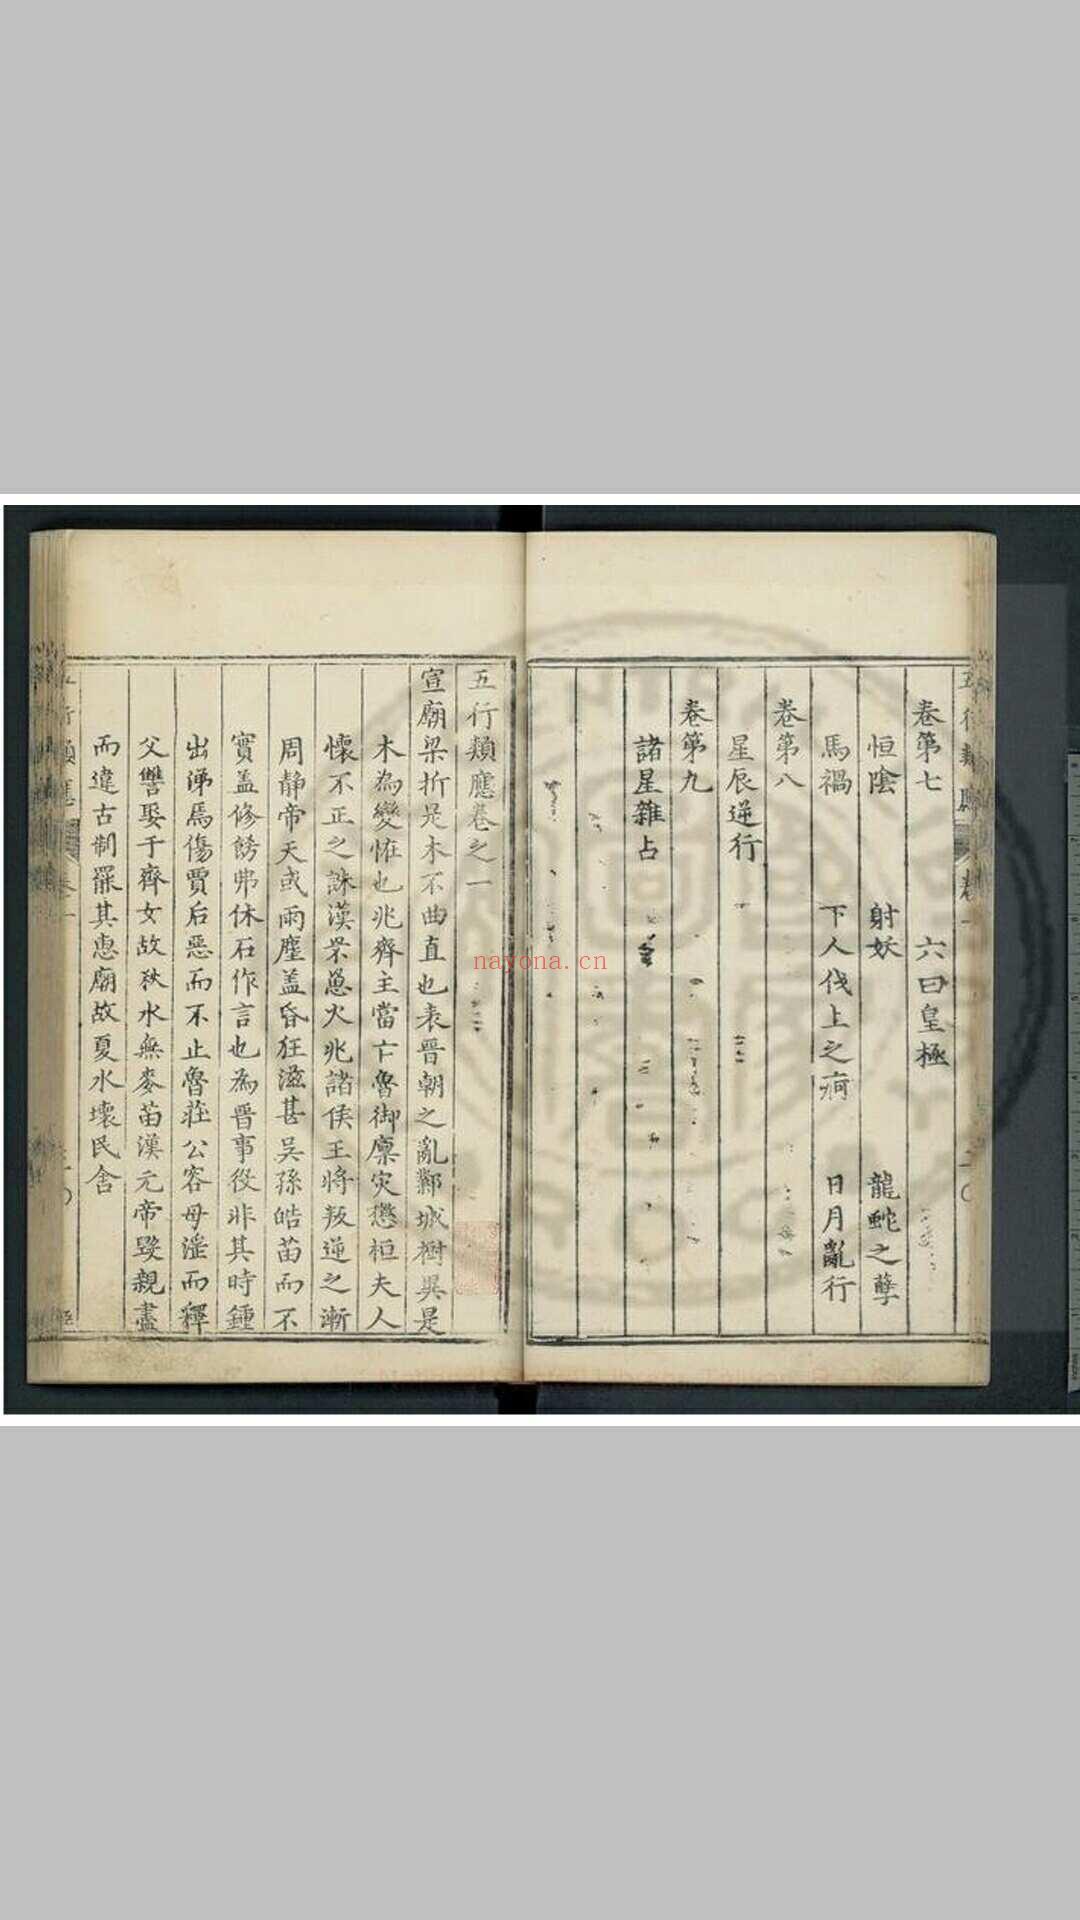 卷第七　六曰皇極
恒陰　射妖　龍蛇之孽
馬禍　下人伐上之痾　日月亂行
卷第八
星辰逆行
卷第九
諸星雜占
五行類應卷之一
宣廟梁折是木不曲直也表晉朝之亂鄴城樹異是
木為變恠也兆齊主當亡魯御廩灾懲桓夫人
懷不正之誅漢罘罳火兆諸侯王將叛逆之漸
周静帝天或雨塵盖昏狂滋甚吳孫皓苗而不
實盖修謗弗休石作言也為晋事役非其時鍾
出涕焉傷賈后惡而不止魯莊公容母滛而釋
父讐娶于齊女故秋水無麥苗漢元帝毀親盡
而違古制罷其惠廟故夏水壞民舍
nayona.cn